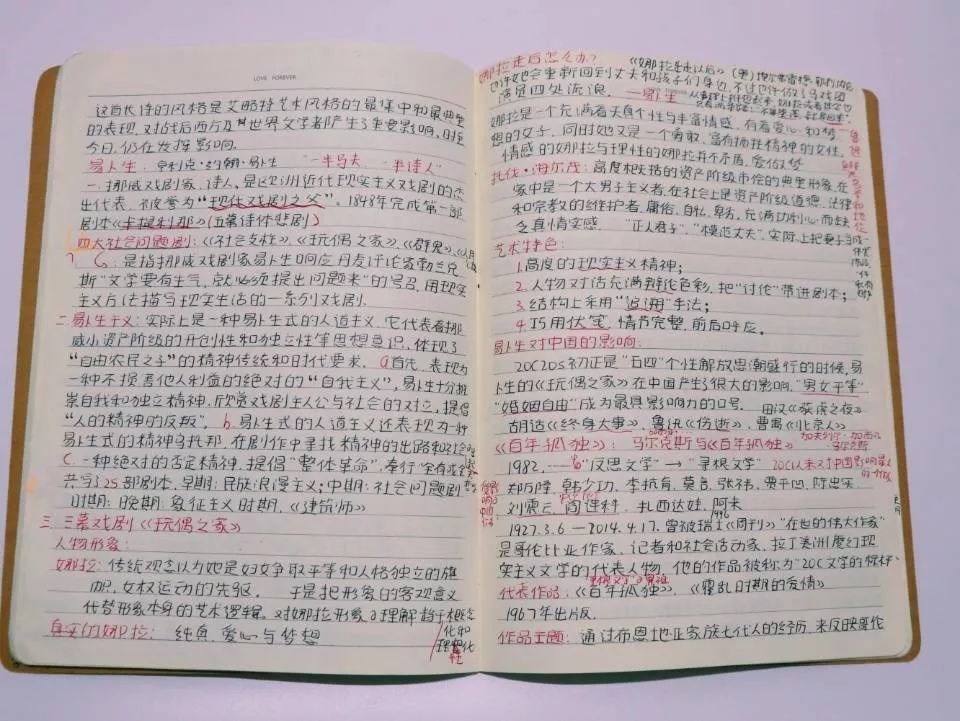 LOVE FOREVER
这首长诗的风格是艾略特艺术风格的最集中和最典型
的表现,对战后西方及其世界文学都产生了重要影响,时至
今日,仍在发挥影响.
易卜生: 亨利克·约翰·易卜生 "一半马夫、一半诗人"
一.挪威戏剧家、诗人,是欧洲近代现实主义戏剧的杰
出代表,被誉为"现代戏剧之父".1848年完成第一部
剧本《卡提利那》(五幕诗体悲剧)
四大社会问题剧:《社会支柱》、《玩偶之家》、《群鬼》、《人民
是指挪威戏剧家易卜生响应丹麦评论家勃兰兑
斯"文学要有生气,就必须提出问题来"的号召,用现实
主义方法描写现实生活的一系列戏剧.
二.易卜生主义:实际上是一种易卜生式的人道主义.它代表着挪
威小资产阶级的开创性和独立性等思想意识,体现了
"自由农民之子"的精神传统和时代要求. a.首先,表现为
一种不损害他人利益的绝对的"自我主义",易卜生十分推
崇自我和独立精神,欣赏戏剧主人公与社会的对立,提倡
"人的精神的反叛". b.易卜生式的人道主义还表现为一种
易卜生式的精神乌托邦.在剧作中寻找精神的出路和社会
c.一种绝对的否定精神.提倡"整体革命",奉行"全有或全无
共写25部剧本.早期:民族浪漫主义;中期:社会问题剧
时期;晚期:象征主义时期.《建筑师》
三.三幕戏剧《玩偶之家》
人物形象:
娜拉:传统观念以为她是妇女争取平等和人格独立的旗
帜,女权运动的先驱. 于是把形象的客观意义
代替形象本身的艺术逻辑,对娜拉形象的理解趋于概念
化和
理想化
真实的娜拉: 纯真、爱心与梦想
娜拉走后怎么办?
也许她会重新回到丈夫和孩子们身边,不过也许做了马戏团
演员四处流浪. —易卜生
娜拉是一个充满着天真个性与丰富情感,有着爱心和梦
想的女子,同时她又是一个勇敢、富有牺牲精神的女性.
情感的娜拉与理性的娜拉并不矛盾.
托伐·海尔茂:高度概括的资产阶级市侩的典型形象.在
家中是一个大男子主义者,在社会上是资产阶级道德、法律
和宗教的维护者.庸俗、自私、卑劣、充满功利心而缺
乏真情实感. "正人君子"、"模范丈夫".实际上把妻子当成
艺术特色:
1.高度的现实主义精神;
2.人物对话充满辩论色彩,把"讨论"带进剧本;
3.结构上采用"追溯"手法;
4.巧用伏笔,情节完整,前后呼应.
易卜生对中国的影响:
20C20S初正是"五四"个性解放思潮盛行的时候,易
卜生的《玩偶之家》在中国产生了很大的影响."男女平等"
"婚姻自由"成为最具影响力的口号. 田汉《获虎之夜》
胡适《终身大事》、鲁迅《伤逝》、曹禺《北京人》
《百年孤独》: 马尔克斯与《百年孤独》
1982. "反思文学"→"寻根文学"
郑万隆、韩少功、李杭育、莫言、张炜、贾平凹、陈忠实、
刘震云、阎连科、扎西达娃、阿来
1927.3.6—2014.4.17.曾被瑞士《周刊》"在世的伟大作家"
是哥伦比亚作家、记者和社会活动家,拉丁美洲魔幻现
实主义文学的代表人物,他的作品被称为"20C文学的
代表作品:《百年孤独》、《霍乱时期的爱情》
1967年出版.
作品主题:通过布恩地亚家族七代人的经历,来反映哥伦